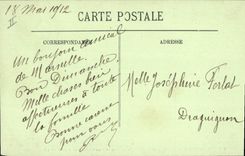 18 Mai 1912
II
CARTE POSTALE
CORRESPONDANCE
ADRESSE
Un bonjour amical
de Marseille
Bon Dimanche
Mille choses bien
affectueuses à toute
la famille
Bonne
pour vous
Melle Joséphine
Draguignan